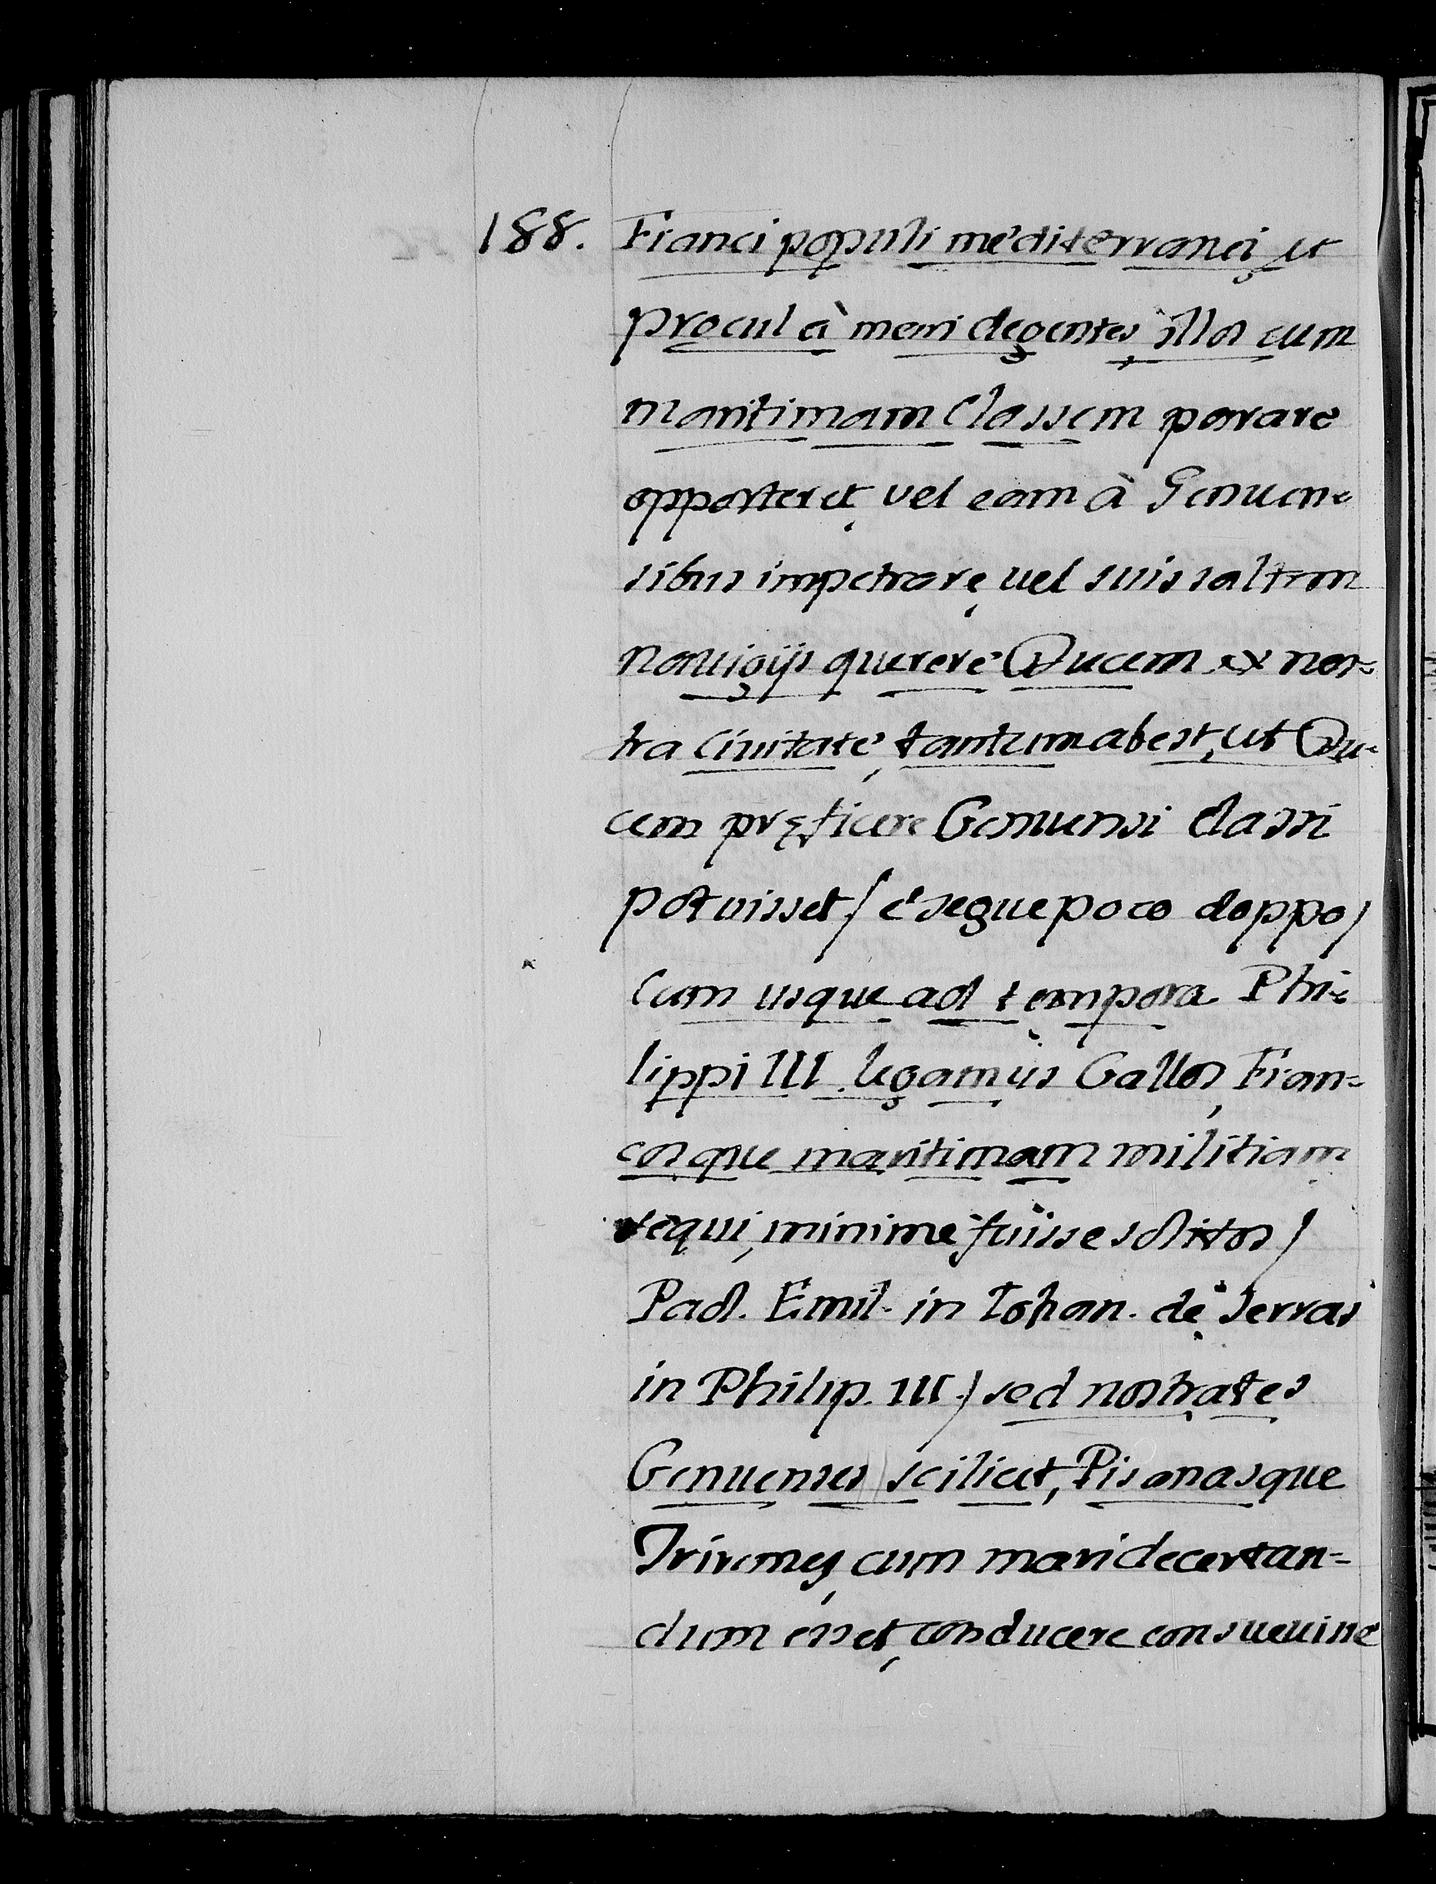 188. Franci populi mediterranei, et
procul à mari degentes, illos cum
maritimam Classem parare
opporteret, vel eam à Genuen=
sibus impetrare, vel suis saltem
nauigijs querere Ducem ex nos=
tra Ciuitate, tantum abest, ut Du=
cem pręficere Genuensi Classi
potuisset / è segue poco doppo /
Cum usque ad tempora Phi=
lippi III. legamus Gallos, Fran=
cosque maritimam militiam
sequi, minimè fuisse solitos /
Paol. Emil. in Iohan. de Serras
in Philip. III.) sed nostrates
Genuenses scilicet, Pisanasque
Triremes, cum mari decertan=
dum esset, conducere consueuisse